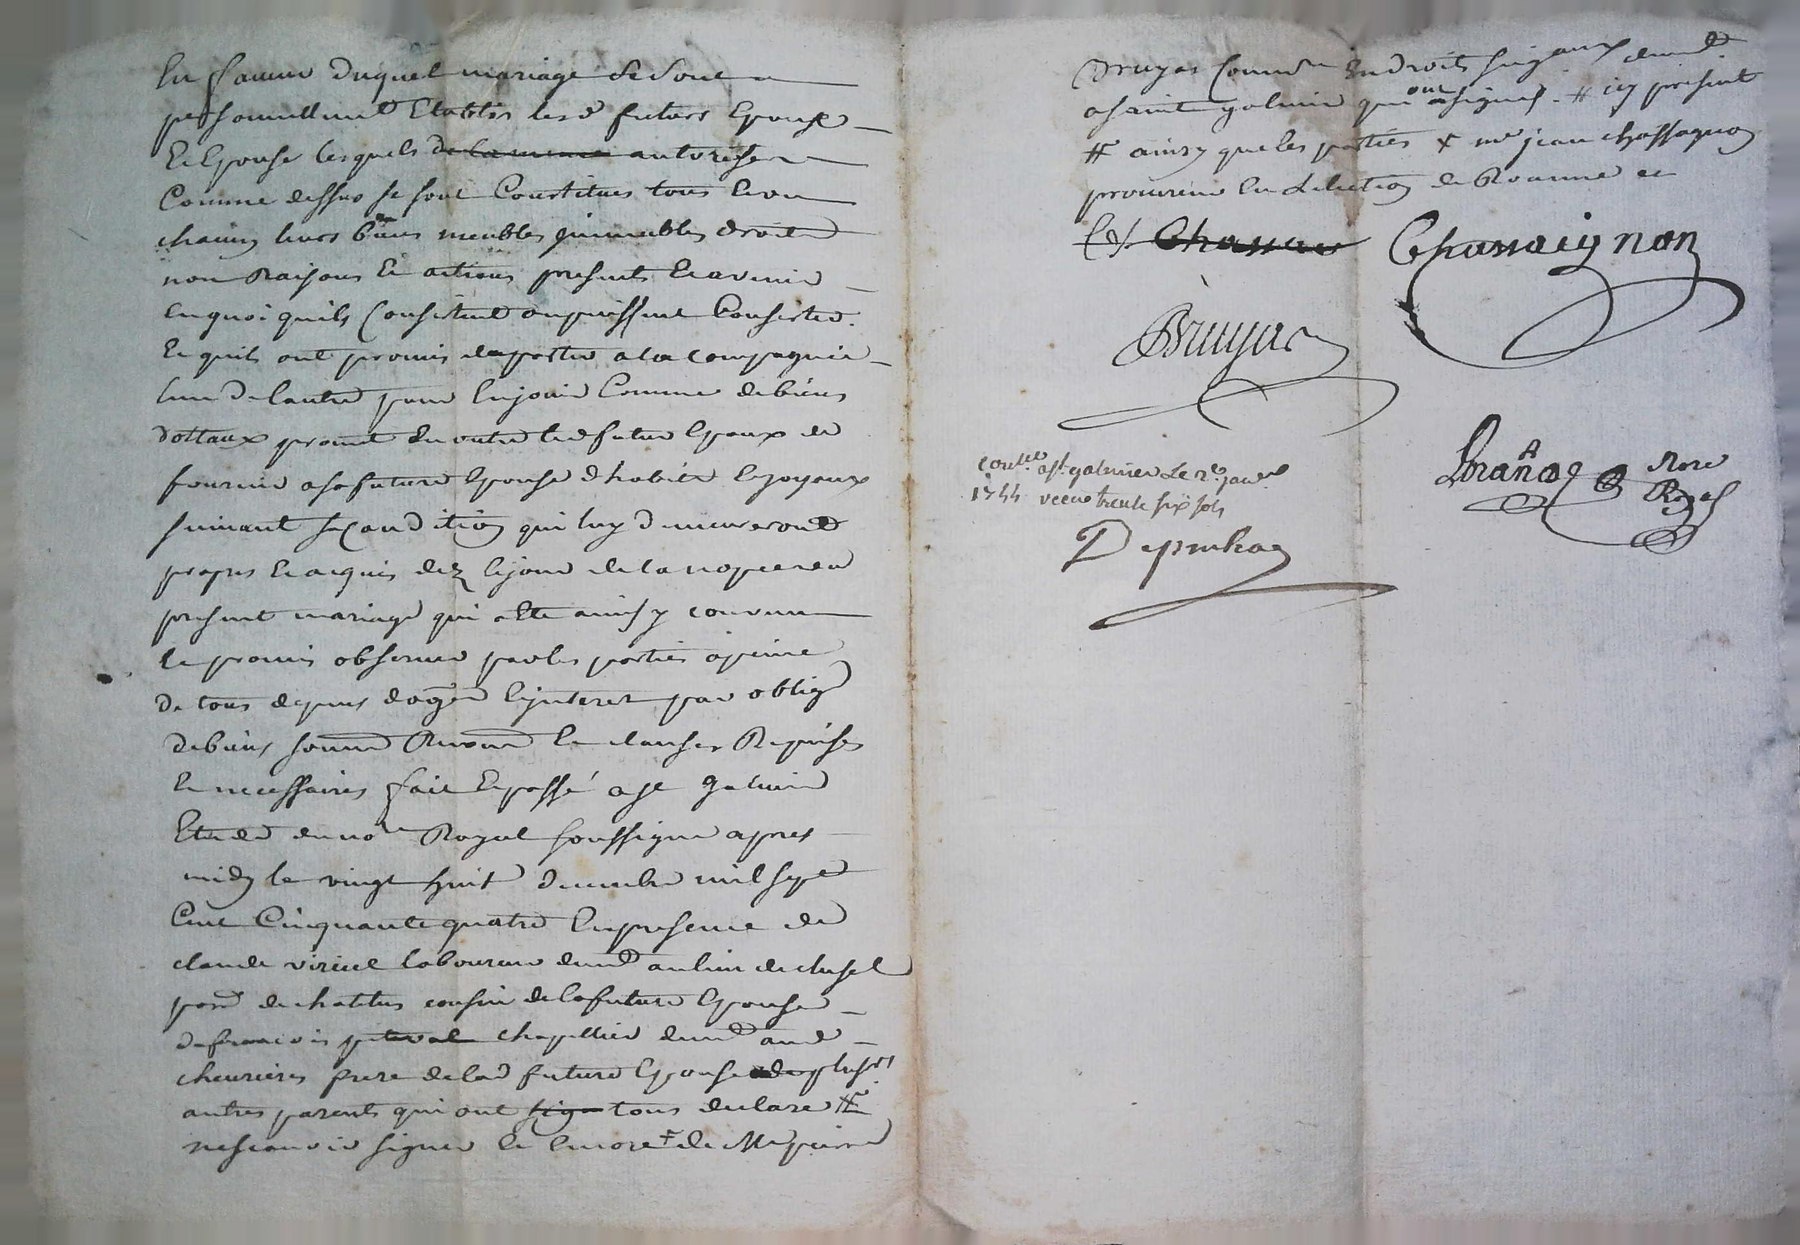 En faveur duquel mariage se sont
personnellement Etablis lesd futurs Epoux
Et Epouse lesquels de la meme autorisée
Comme dessus se sont Constitues tous Et un
chacun leurs biens meubles immeubles droits
nom Raisons Et actions presents Et avenir
En quoi quils Consistent ou puissent Consister.
Et quils ont promis daporter a la compagnie
lun de lautre pour En jouir Comme de biens
dottaux promet En outre led futur Epoux de
fournir a sa future Epouse dhabits Et joyaux
suivant sa Condition qui luy demeureront
propres Et acquis dez le jour de la
present mariage qui a Ete ainsy convenu
Et promis observer par les parties a peine
de tous depens domges Et interet par oblig
de biens soumd Renond Et clauses Requises
Et necessaires fait Et passé a st galmier
Etude du nore Royal soussigne apres
midy le vingt huit decembre mil sept
Cent Cinquante quatre En presence de
claude viricel laboureur demd au lieu de clusel
parse de chatelus cousin de la future Epouse
de francois chapellier demd aud
chevrieres frere de lad future Epouse de plusrs
autres parents qui ont sig tous declare #
ne scavoir signer Et Encore de Me pierre
Bruyas Commre En droits seigaux demd
a saint galmier qui ont signes. # icy present
# ainsy que les parties x mr jean chassagnon
procureur En Lelection de Roanne et
Chassaignon
Bruyas
Conlle a st galmier Le 2e janer
1755 receu trente six sols
Nore
Royal